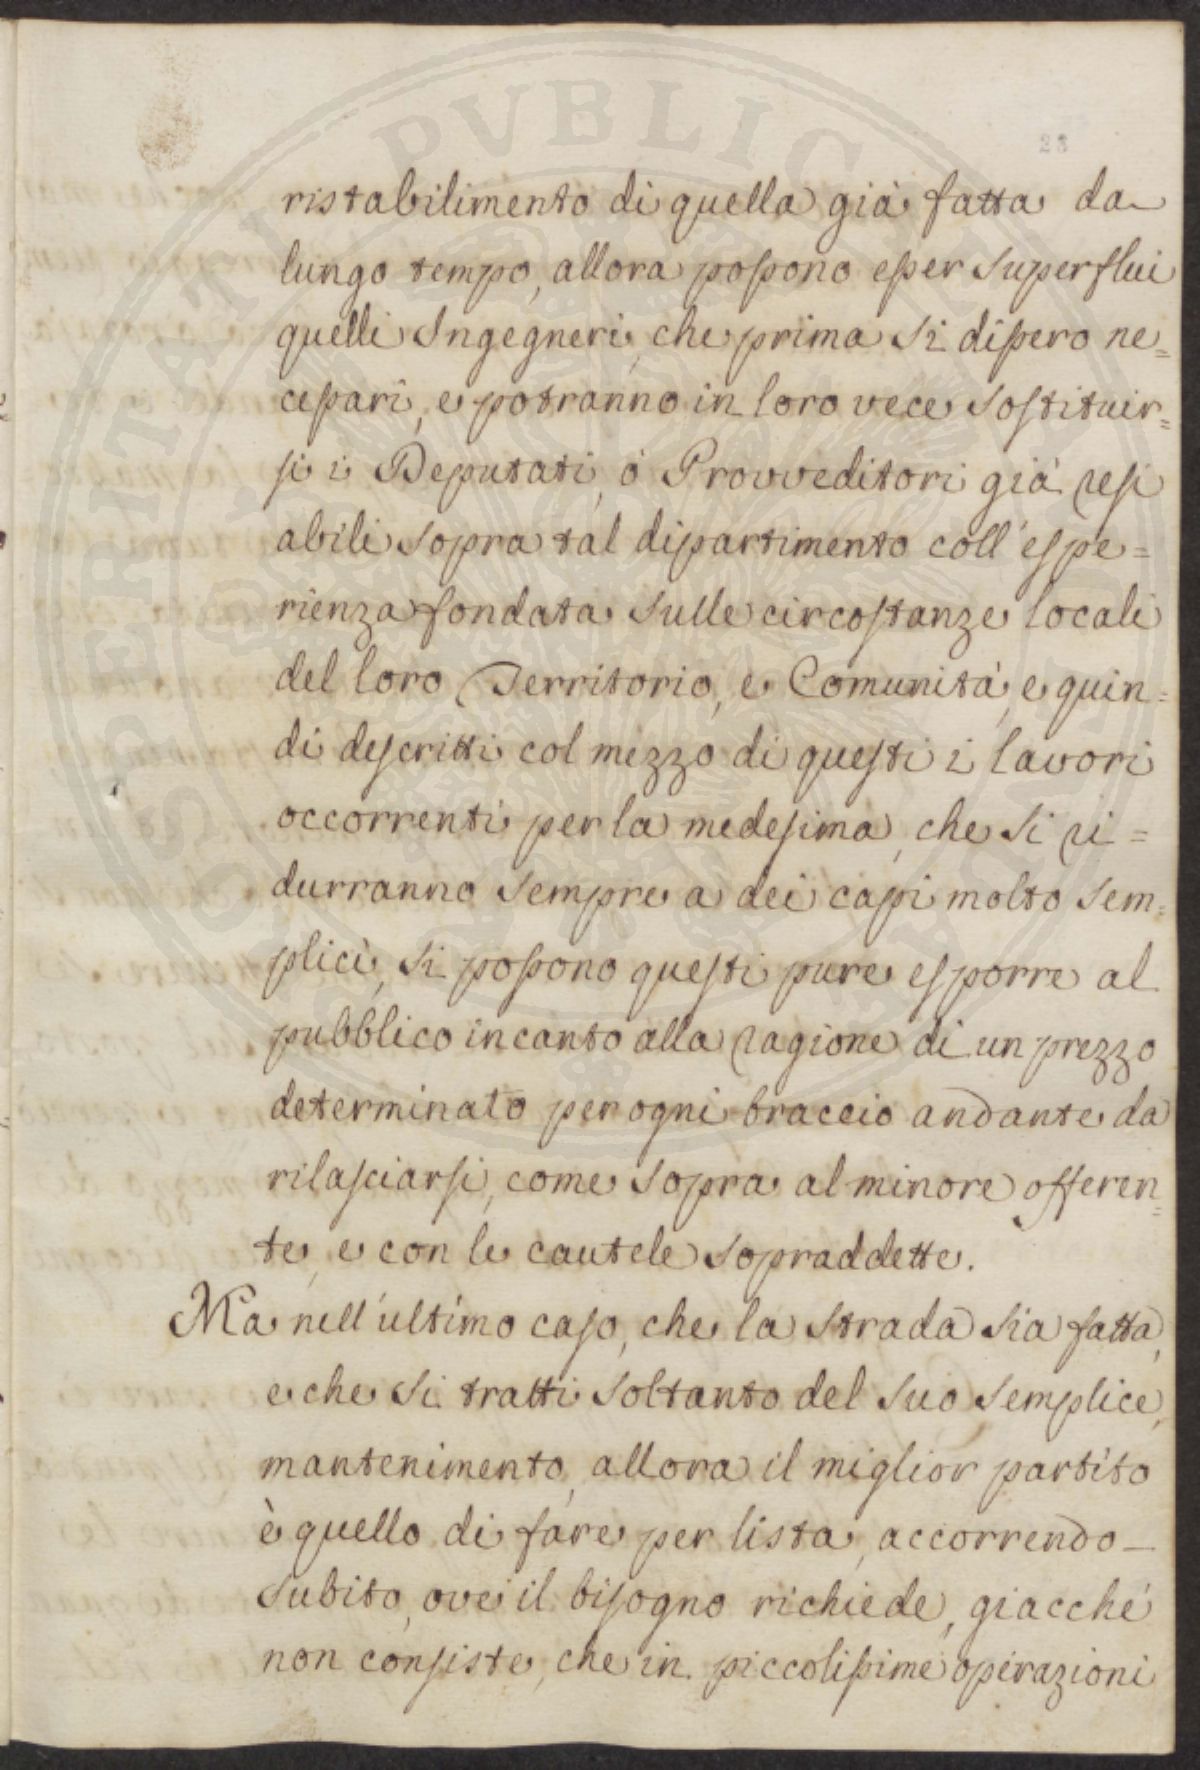 28
ristabilimento di quella già fatta da
lungo tempo, allora possono esser superflui
quelli Ingegneri, che prima si dissero ne=
cessari, e potranno in loro vece sostituir=
si i Deputati, ò Provveditori già resi
abili sopra tal dipartimento coll'espe=
rienza fondata sulle circostanze locali
del loro Territorio, e Comunità, e quin=
di descritti col mezzo di questi i lavori
occorrenti per la medesima, che si ri=
durranno sempre a dei capi molto sem=
plici, si possono questi pure esporre al
pubblico incanto alla ragione di un prezzo
determinato per ogni braccio andante da
rilasciarsi, come sopra al minore offeren=
te, e con le cautele sopraddette.
Ma nell'ultimo caso, che la strada sia fatta,
e che si tratti soltanto del suo semplice
mantenimento, allora il miglior partito
è quello di fare per lista, accorrendo
subito, ove il bisogno richiede, giacché
non consiste, che in piccolissime operazioni